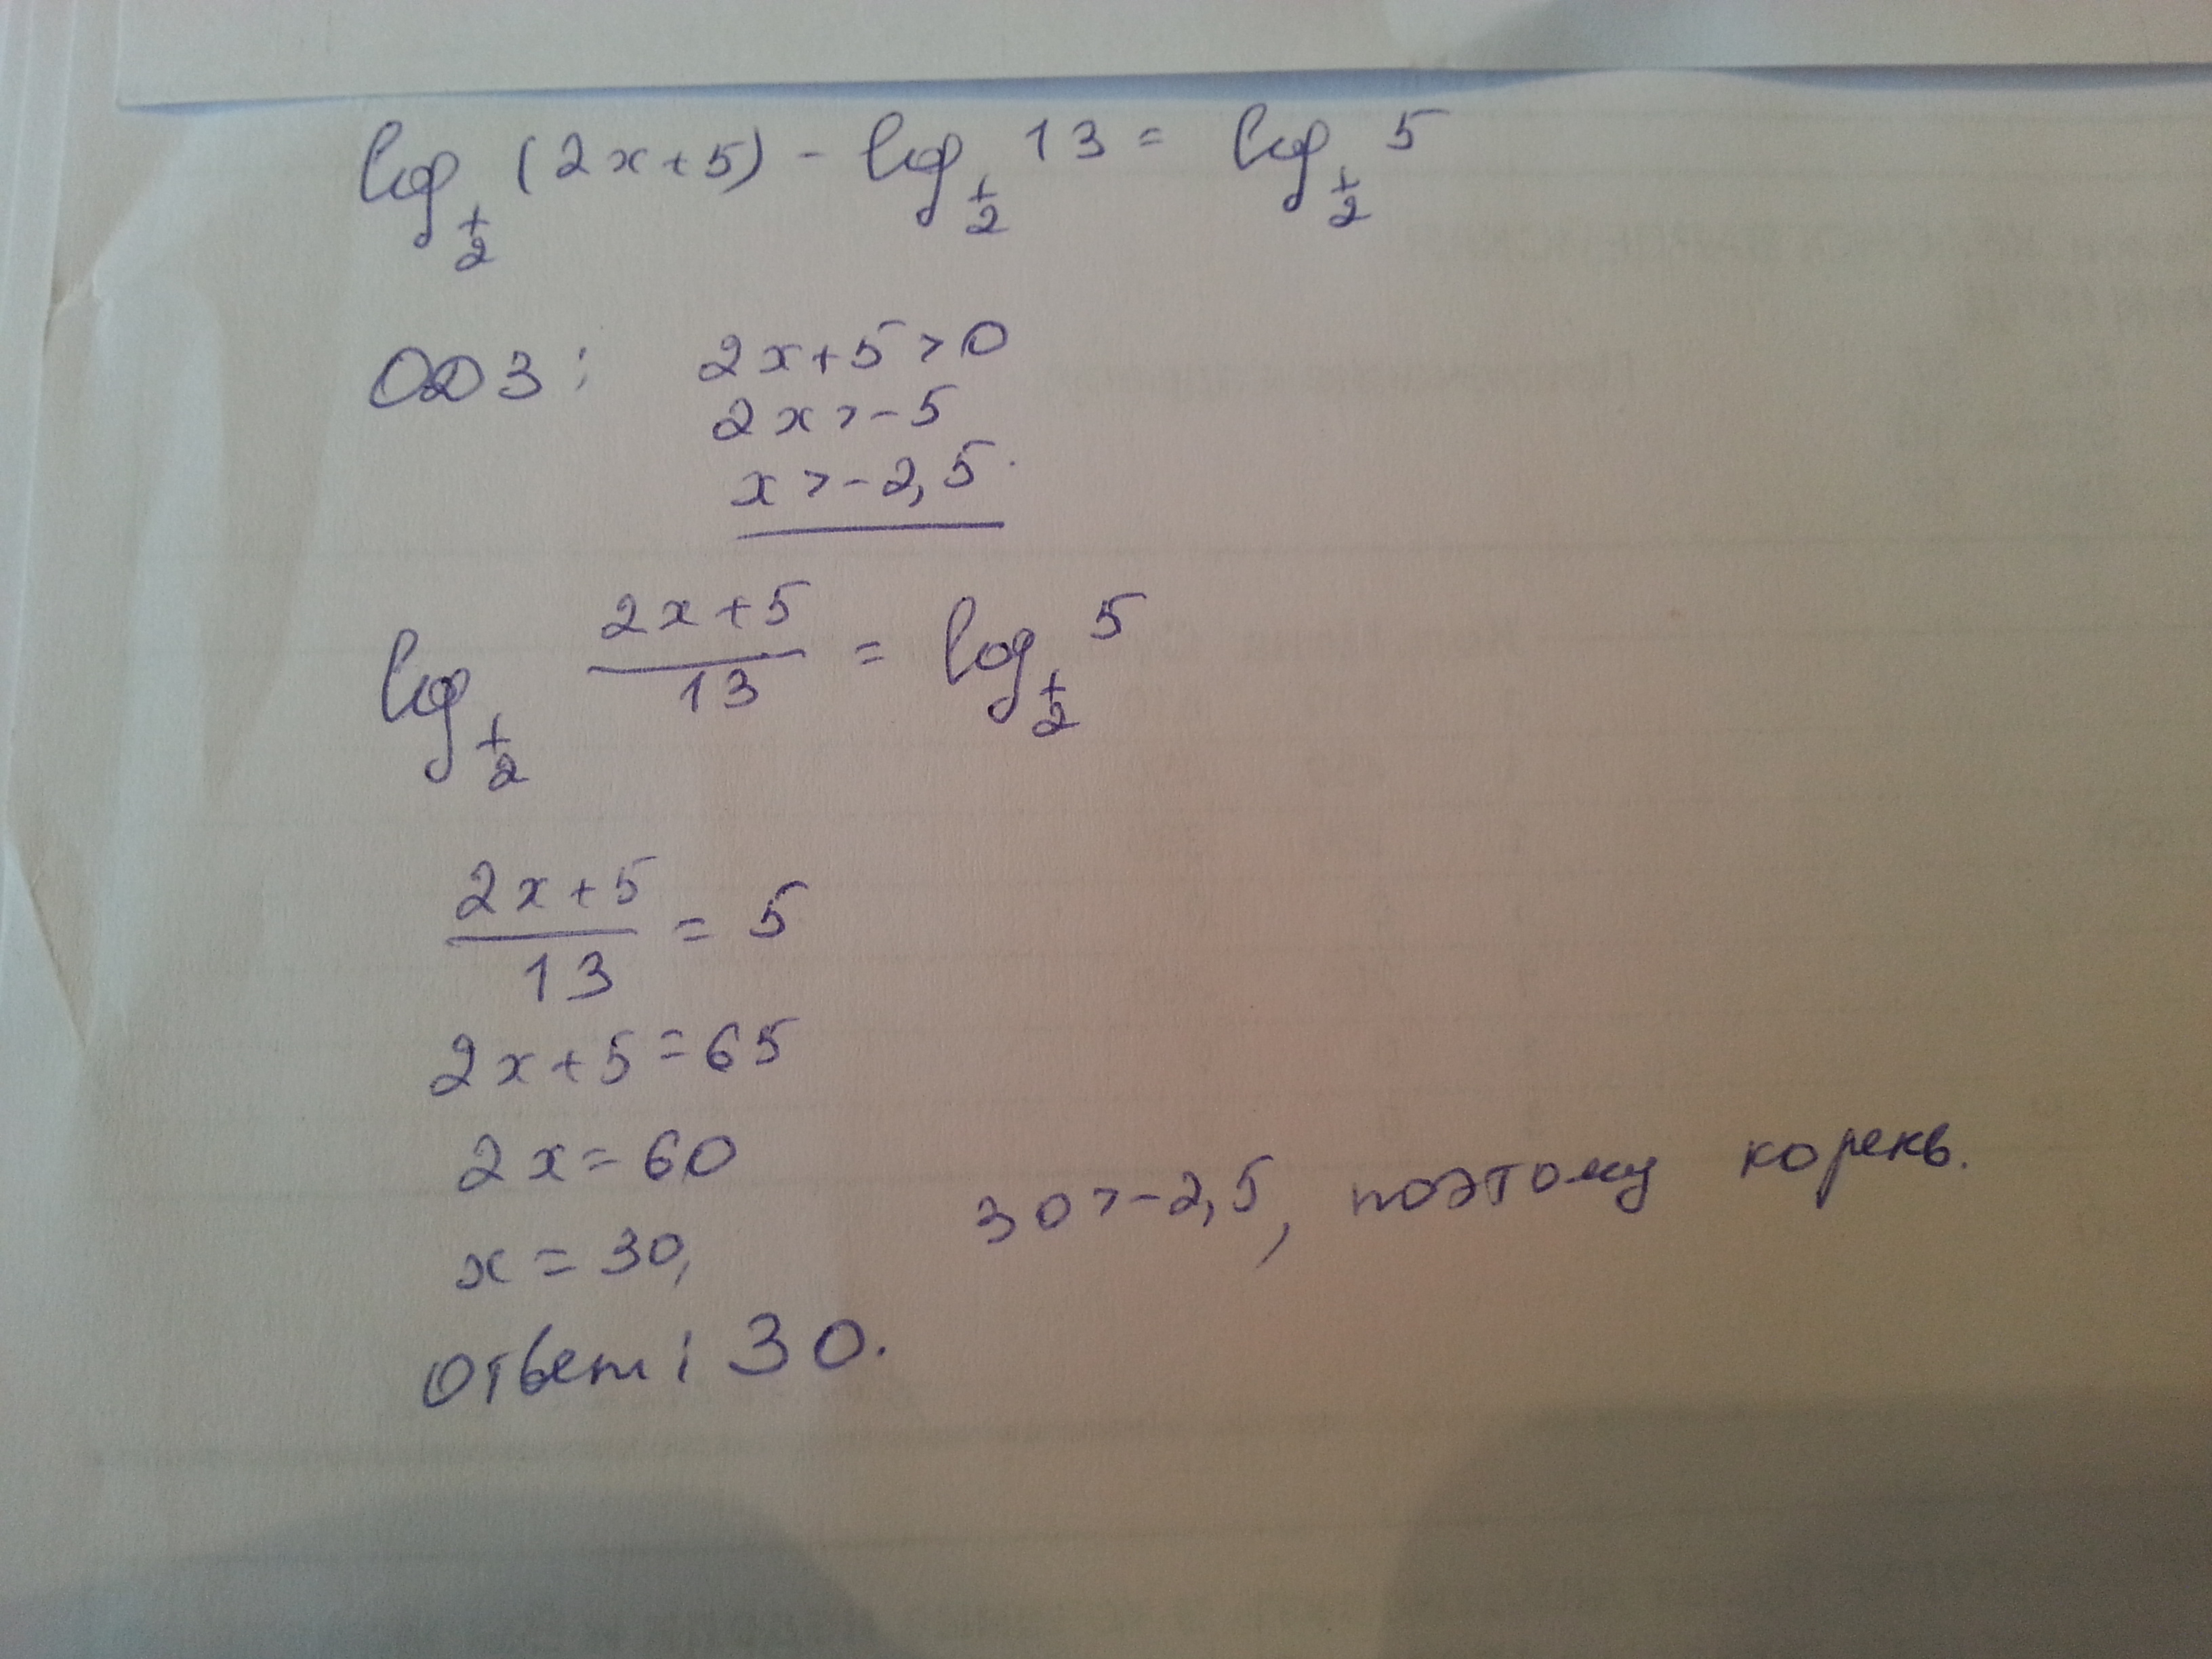 log_{1/2} (2x+5) - log_{1/2} 13 = log_{1/2} 5
ОДЗ: 2x+5>0
2x>-5
x>-2,5.
log_{1/2} \frac{2x+5}{13} = log_{1/2} 5
\frac{2x+5}{13} = 5
2x+5=65
2x=60
x=30, 30>-2,5, поэтому корень.
Ответ: 30.